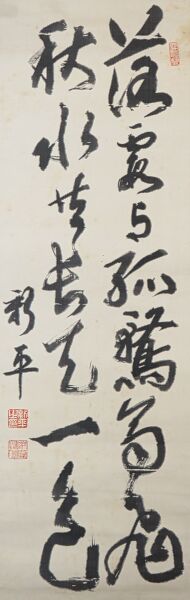 落霞与孤鶩斉飛
秋水共長天一色
新平